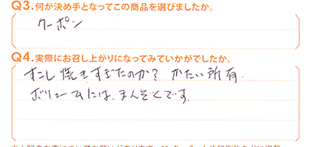 Q3.何が決め手となってこの商品を選びましたか。
クーポン
Q4.実際にお召し上がりになってみていかがでしたか。
すこし焼きすぎたのか? かたい所有
ボリュームには、まんぞくです。